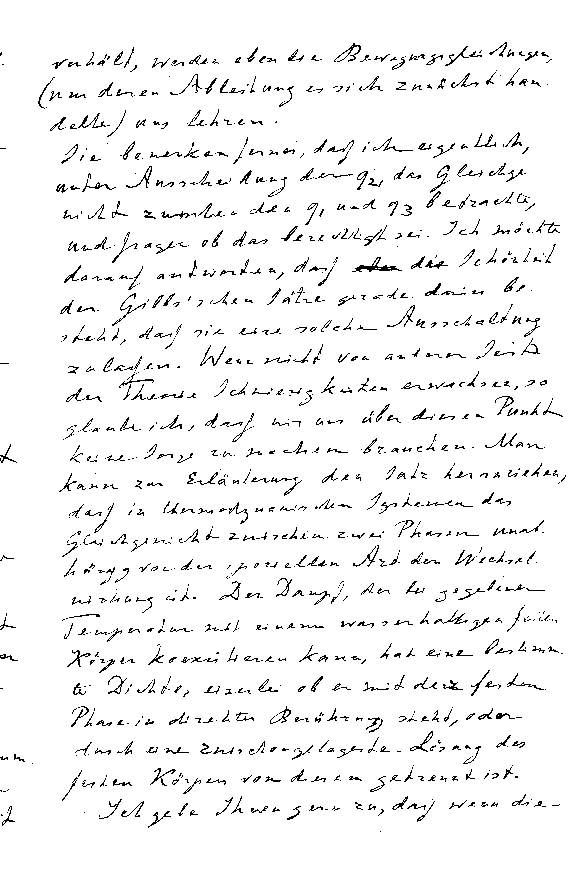 verhält, werden eben die Bewegungsgleichungen,
(um deren Ableitung es sich zunächst han-
delte) uns lehren.
Sie bemerken ferner, daß ich eigentlich,
unter Ausscheidung der q2, das Gleichge
nicht zwischen den q1 und q3 betrachte,
und fragen ob das berechtigt sei. Ich möchte
darauf antworten, daß die Schönheit
der Gibbs'schen Sätze gerade darin be-
steht, daß sie eine solche Ausschaltung
zulaßen. Wenn nicht von anderer Seite
der Theorie Schwierigkeiten erwachsen, so
glaube ich, daß wir uns über diesen Punkt
keine Sorge zu machen brauchen. Man
kann zur Erläuterung den Satz heranziehen,
daß in thermodynamischen Systemen das
Gleichgewicht zwischen zwei Phasen unab-
hängig von der speziellen Art der Wechsel-
wirkung ist. Der Dampf, der bei gegebener
Temperatur mit einem wasserhaltigen festen
Körper koexistieren kann, hat eine bestimm-
te Dichte, einerlei ob er mit der festen
Phase in direkter Berührung steht, oder
durch eine zwischengelagerte Lösung des
festen Körpers von diesem getrennt ist.
Ich gebe Ihnen gern zu, daß wenn die-